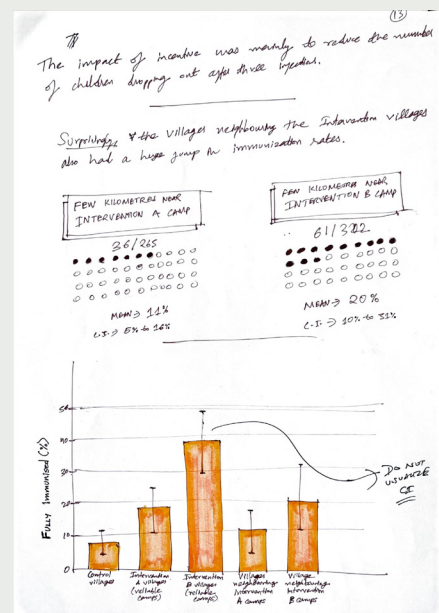 (13)
The impact of incentive was mainly to reduce the number
of children dropping out after three injections.
Surprisingly, the villages neighbouring the Intervention villages
also had a huge jump in immunization rates.
FEW KILOMETRES NEAR
INTERVENTION A CAMP
36/265
MEAN → 11%
C.I. → 5% to 16%
FEW KILOMETRES NEAR
INTERVENTION B CAMP
61/322
MEAN → 20%
C.I. → 10% to 31%
Fully Immunised (%)
50
40
30
20
10
0
DO NOT
VISUALIZE
CI
Control
villages
Intervention
A villages
(reliable
camps)
Intervention
B villages
(reliable
camps)
Villages
neighbouring
Intervention
A camps
Village
neighbouring
Intervention
B camps